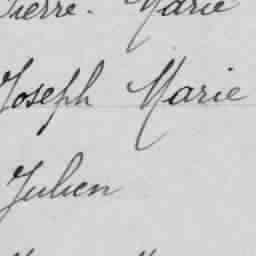 Pierre. Marie
Joseph Marie
Julien